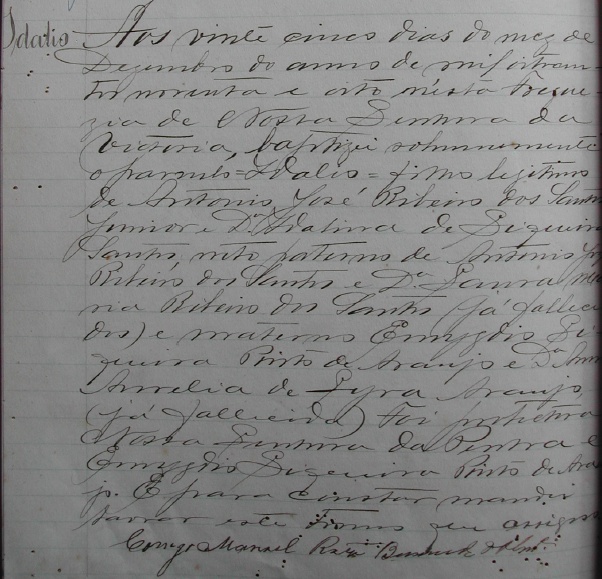 Idalio
Aos vinte cinco dias do mez de
Dezembro do anno de mil oitocen-
tos noventa e oito nésta Fregue-
zia de Nossa Senhora da
Victoria, baptizei solemnemente
o parvulo = Idalio = filho legitimo
de Antonio José Ribeiro dos Santos
Junior e D.ª Idalina de Siqueira
Santos, neto paterno de Antonio José
Ribeiro dos Santos e D.ª Laura Ma-
ria Ribeiro dos Santos (já falleci-
dos) e materno Emygdio Si-
queira Pinto de Araujo e D.ª Anna
Aurelia de Lyra Araujo,
(já fallecida) Foi protectora
Nossa Senhora da Penha e
Emygdio Siqueira Pinto de Arau-
jo. E para constar mandei
lavrar este Termo que assigno
Conego Manoel